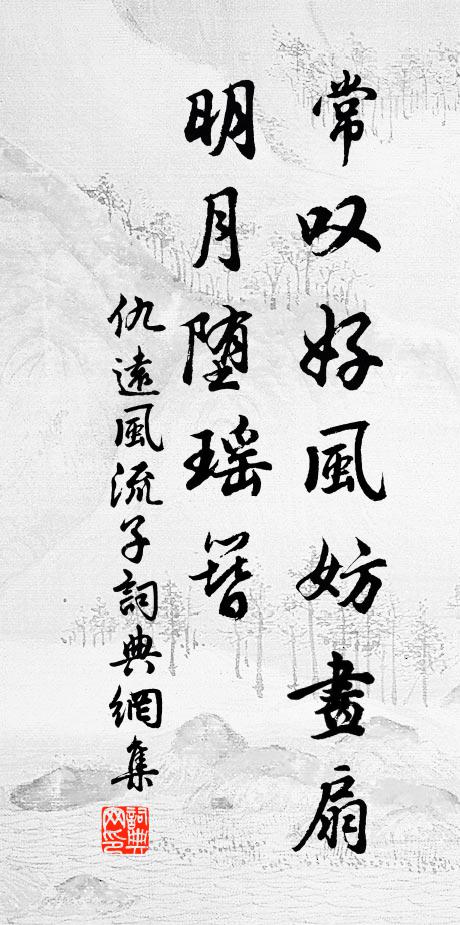 常叹好風妨畫扇
明月堕瑶簪
仇遠風流子詞典網集
詞典網印